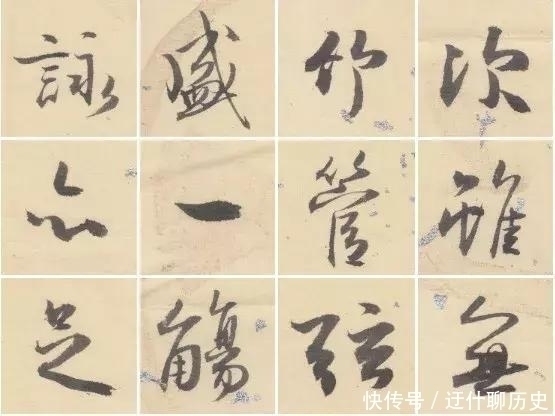 次雖無
竹管弦
盛一觴
詠亦足
快传号 / 迂什聊历史